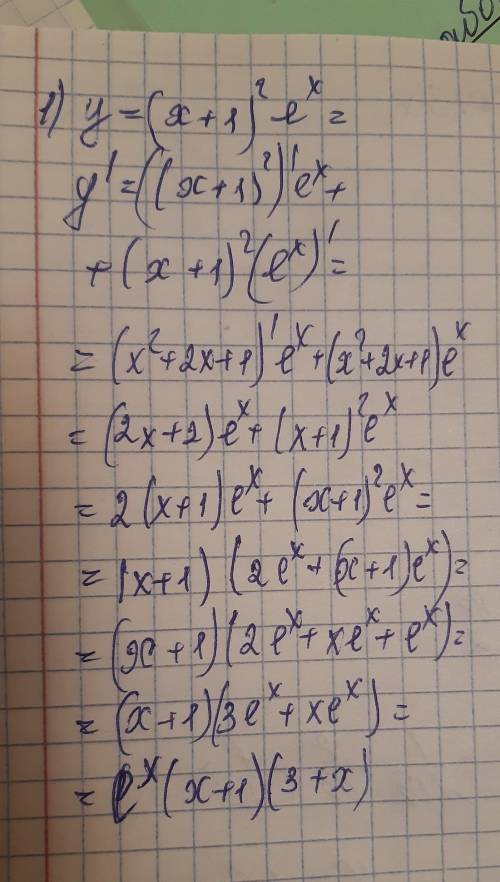 1) y = (x+1)² eˣ =
y' = ((x+1)²)' eˣ +
+ (x+1)² (eˣ)' =
= (x²+2x+1)' eˣ + (x²+2x+1) eˣ
= (2x+2) eˣ + (x+1)² eˣ
= 2(x+1) eˣ + (x+1)² eˣ =
= (x+1) (2eˣ + (x+1) eˣ) =
= (x+1) (2eˣ + xeˣ + eˣ) =
= (x+1) (3eˣ + xeˣ) =
= eˣ (x+1) (3+x)